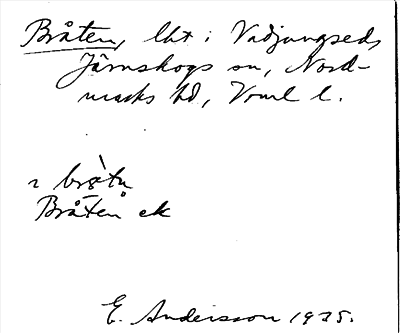 Bråten, lht i Vadjungseds
Järnskogs sn, Nord-
marks hd, Vrml l.
2 bråtn
Bråten ek
E. Andersson 1925.